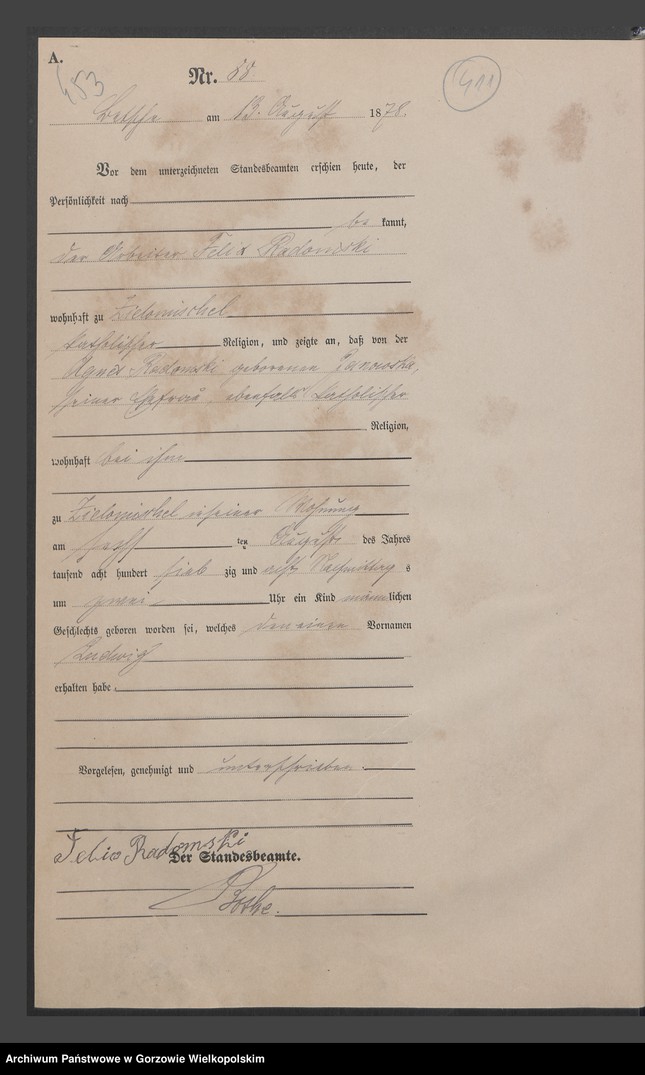 A.
453
Nr. 88
411
Betsche am 13. August 1878.
Vor dem unterzeichneten Standesbeamten erschien heute, der
Persönlichkeit nach
be kannt,
der Arbeiter Felix Radomski
wohnhaft zu Zielomischel
katholischer Religion, und zeigte an, daß von der
Agnes Radomski geborenen Janowska,
seiner Ehefrau, ebenfalls katholischer
Religion,
wohnhaft bei ihm
zu Zielomischel in seiner Wohnung
am ten August des Jahres
tausend acht hundert sieb zig und acht Nachmittag s
um zwei Uhr ein Kind männlichen
Geschlechts geboren worden sei, welches den einen Vornamen
Ludwig
erhalten habe.
Vorgelesen, genehmigt und unterschrieben.
Felix Radomski
Der Standesbeamte.
Bothe.
Archiwum Państwowe w Gorzowie Wielkopolskim